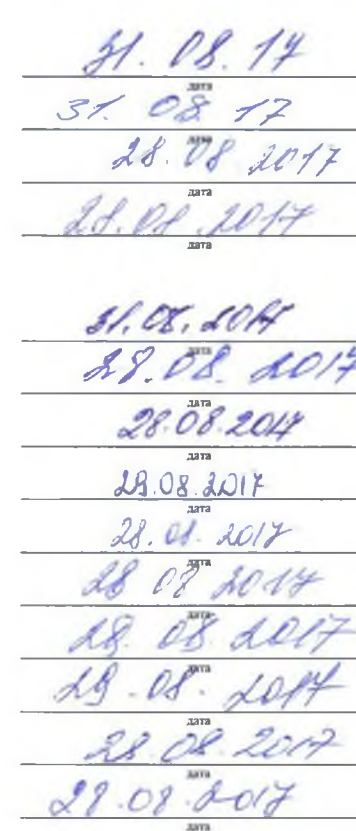 31. 08. 17
дата
31. 08 17
дата
28. 08 2017
дата
28.08.2017
дата
31.08.2017
28.08. 2017
дата
28.08.2017
дата
29.08.2017
дата
28.08. 2017
дата
28 08 2017
дата
28. 08 2017
дата
29.08. 2017
дата
28.08.2017
дата
28.08.2017
дата